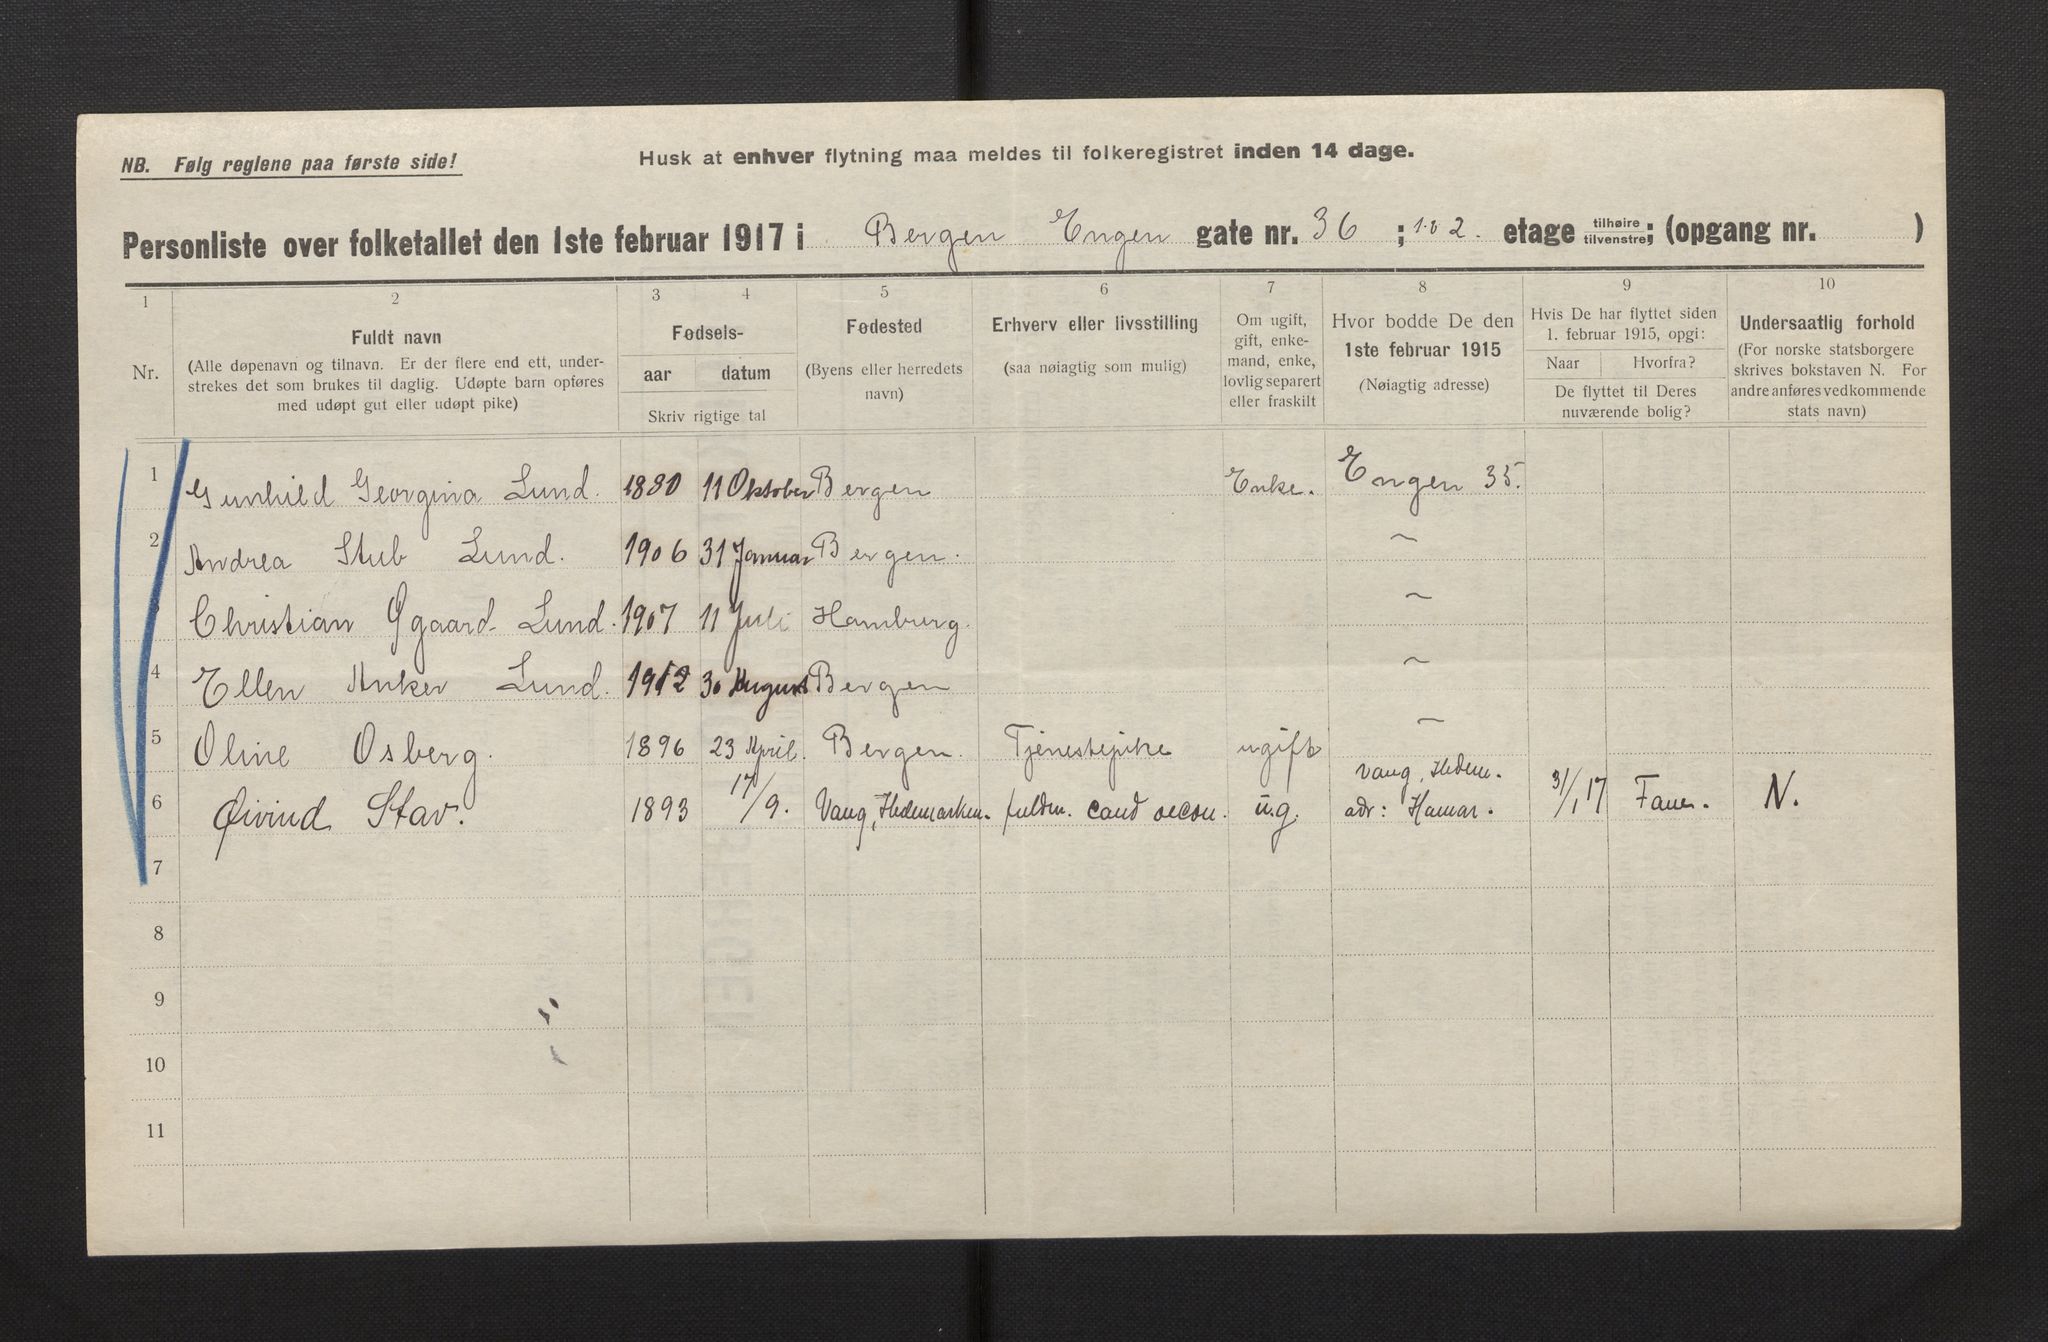 NB. Følg reglene paa første side!
Husk at enhver flytning maa meldes til folkeregistret inden 14 dage.
Personliste over folketallet den 1ste februar 1917 i Bergen Engen gate nr. 36 ; 1. o 2. etage tilhøire tilvenstre; (opgang nr. )
1 2 3 4 5 6 7 8 9 10
Nr.
Fuldt navn
(Alle døpenavn og tilnavn. Er der flere end ett, under-
strekes det som brukes til daglig. Udøpte barn opføres
med udøpt gut eller udøpt pike)
Fødsels-
aar datum
Skriv rigtige tal
Fødested
(Byens eller herredets
navn)
Erhverv eller livsstilling
(saa nøiagtig som mulig)
Om ugift,
gift, enke-
mand, enke,
lovlig separert
eller fraskilt
Hvor bodde De den
1ste februar 1915
(Nøiagtig adresse)
Hvis De har flyttet siden
1. februar 1915, opgi:
Naar Hvorfra?
De flyttet til Deres
nuværende bolig?
Undersaatlig forhold
(For norske statsborgere
skrives bokstaven N. For
andre anføres vedkommende
stats navn)
1 Gunhild Georgina Lund. 1880 11 Oktober Bergen Enke. Engen 35.
2 Andrea Stub Lund. 1906 31 Januar Bergen. ~
3 Christian Øgaard Lund. 1907 11 Juli Hamburg. ~
4 Ellen Anker Lund. 1912 30 August Bergen ~
5 Oline Osberg. 1896 23 April. Bergen. Tjenestepike ugift ~
6 Øivind Stav. 1893 17/9. Vang, Hedemarken. fuldm. cand oecon. ug. Vang, Hedem.
adr: Hamar. 31/1 17 N.
7
8
9
10
11